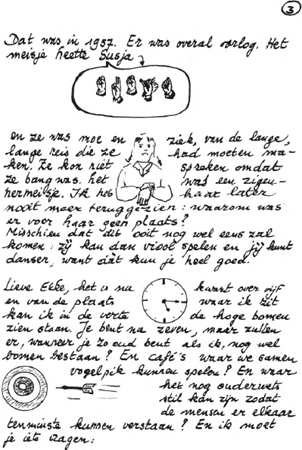 3
Dat was in 1937. Er was overal oorlog. Het
meisje heette Susja,
en ze was moe en ziek, van de lange,
lange reis die ze had moeten ma-
ken. Ze kon niet spreken omdat
ze bang was. het was een zigeu-
nermeisje. Ik heb haar later
nooit meer teruggezien: waarom was
er voor haar geen plaats?
Misschien dat dit ooit nog wel eens zal
komen: zij kan dan viool spelen en jij kunt
dansen, want dat kun je heel goed.
Lieve Eeke, het is nu kwart over vijf
en van de plaats waar ik zit
kan ik in de verte de hoge bomen
zien staan. Je bent nu zeven, maar zullen
er, wanneer je zo oud bent als ik, nog wel
bomen bestaan? En café's waar we samen
vogelpik kunnen spelen? En waar
het nog ouderwets
stil kan zijn zodat
de mensen er elkaar
tenminste kunnen verstaan? En ik moet
je iets vragen: